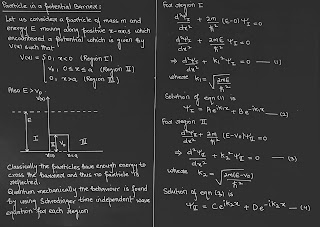 Particle in a Potential Barrier:
Let us consider a particle of mass m and
energy E moving along positive x-axis which
encountered a potential which is given by
V(x) such that
V(x) = { 0, x<0 (Region I)
V₀, 0≤x≤a (Region II)
0, x>a (Region III)
Also E>V₀
V(x)
E
I
II
V₀
III
x=0
x=a
Classically the particles have enough energy to
cross the barrier and thus no particle is
reflected.
Quantum mechanically the behaviour is found
by using Schrodinger time independent wave
equation for each region
For region I
d²ψ_I/dx² + 2m/ħ² (E-0)ψ_I = 0
d²ψ_I/dx² + 2mE/ħ² ψ_I = 0
⇒ d²ψ_I/dx² + k₁² ψ_I = 0 — (1)
where k₁ = √(2mE/ħ²)
Solution of eqn (1) is
ψ_I = A e^{ik₁x} + B e^{-ik₁x} — (2)
For region II
d²ψ_II/dx² + 2m/ħ² (E-V₀)ψ_II = 0
⇒ d²ψ_II/dx² + k₂² ψ_II = 0 — (3)
where k₂ = √(2m(E-V₀)/ħ²)
Solution of eqn (3) is
ψ_II = C e^{ik₂x} + D e^{-ik₂x} — (4)